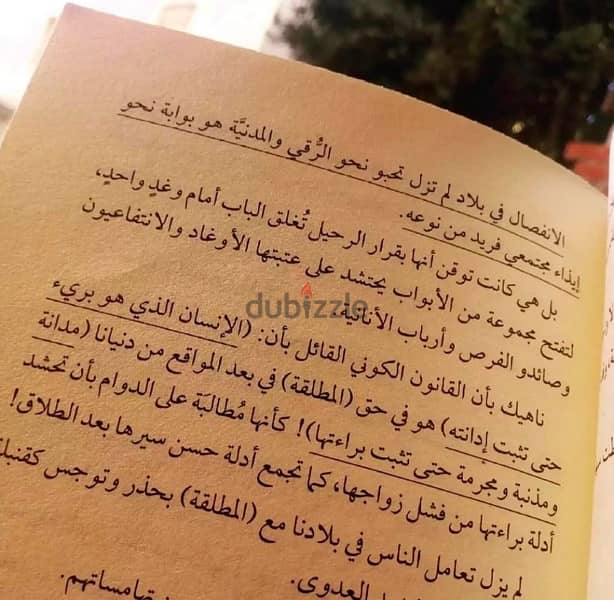 الانفصال في بلاد لم تزل تحبو نحو الرُّقي والمدنيَّة هو بوابة نحو
إيذاء مجتمعي فريد من نوعه.
بل هي كانت توقن أنها بقرار الرحيل تُغلق الباب أمام وغدٍ واحدٍ،
لتفتح مجموعة من الأبواب يحتشد على عتبتها الأوغاد والانتفاعيون
وصائدو الفرص وأرباب الأنانية.
ناهيك بأن القانون الكوني القائل بأن: (الإنسان الذي هو بريء
حتى تثبت إدانته) هو في حق (المطلقة) في بعد المواقع من دنيانا (مدانة
ومذنبة ومجرمة حتى تثبت براءتها)! كأنها مُطالبَة على الدوام بأن تحشد
أدلة براءتها من فشل زواجها، كما تجمع أدلة حسن سيرها بعد الطلاق!
لم يزل تعامل الناس في بلادنا مع (المطلقة) بحذر وتوجس كقنبلة
العدوى.
dubizzle